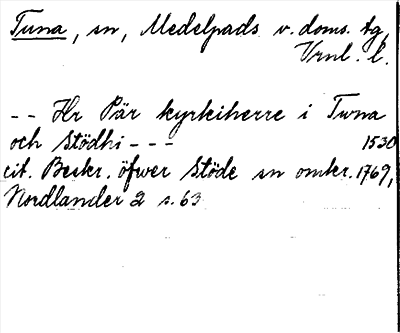 Tuna, sn, Medelpads v. doms. tg,
Vrnl. l.
-- Hr Pär kyrkiherre i Tuna
och Stödhi --- 1530
cit. Beskr. öfwer Stöde sn omkr. 1769,
Nordlander 2 s. 63